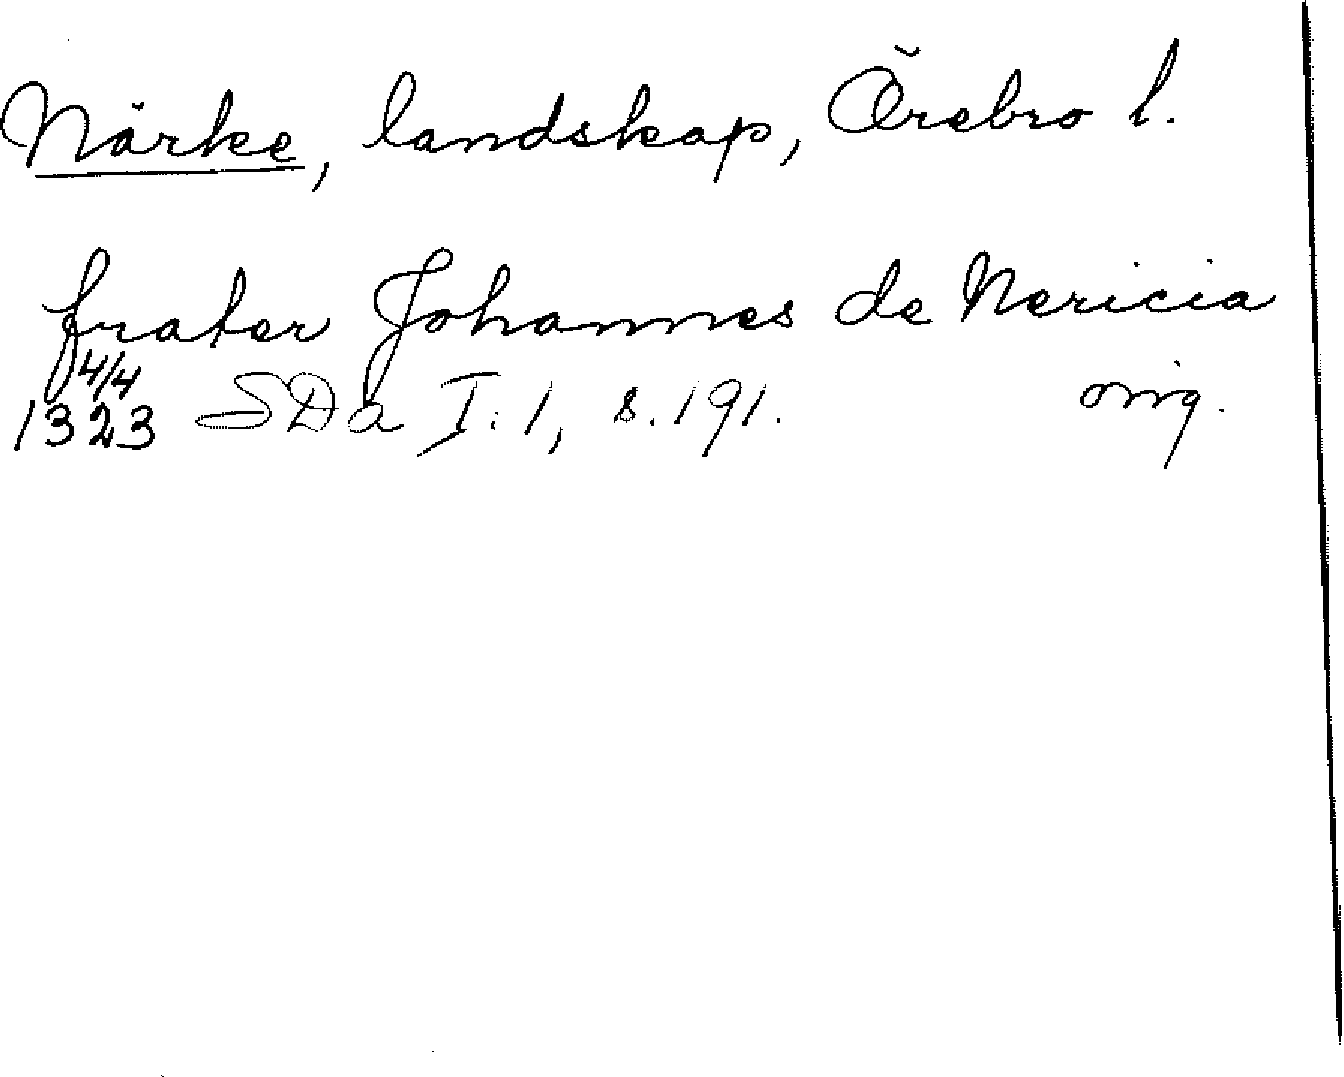 Närke, landskap, Örebro l.
frater Johannes de Nericia
4/4
1323 SDa I:1, s. 191. orig.